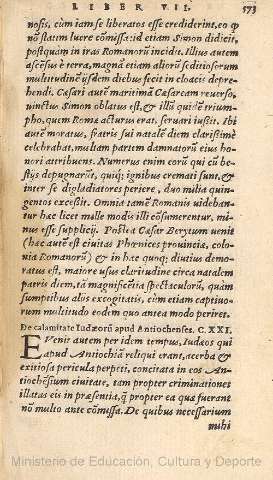 LIBER VII. 573
nosis, cùm iam se liberatos esse crediderint, eo q̃
nõ statim luere cõmissa: id etiam Simon didicit,
postquam in iras Romanorũ incidit. Illius autem
ascẽsus è terra, magnã etiam aliorũ seditiosorum
multitudinẽ ijsdem diebus fecit in cloacis depre-
hendi. Cæsari autẽ maritimã Cæsaream reuerso,
vinctus Simon oblatus est, & illũ quidẽ trium-
pho, quem Romæ acturus erat, seruari iussit. Ibi
autẽ moratus, fratris sui natalẽ diem clarissimè
celebrabat, multam partem damnatorũ eius ho-
nori attribuens. Numerus enim eorũ qui cũ be-
stijs depugnarũt, quiq; ignibus cremati sunt, &
inter se digladiatores periere, duo milia quin-
gentos excessit. Omnia tamẽ Romanis videban-
tur hæc licet mille modis illi cõsumerentur, mi-
nus esse supplicij. Postea Cæsar Berytum uenit
(hæc autẽ est ciuitas Phœnices prouinciæ, colo-
nia Romanorũ) & in hac quoq; diutius demo-
ratus est, maiore usus claritudine circa natalem
patris diem, tã magnificẽtia spectaculorũ, quàm
sumptibus alijs excogitatis, cùm etiam captiuo-
rum multitudo eodem quo antea modo periret.
De calamitate Iudæorũ apud Antiochenses. C. XXI.
EVenit autem per idem tempus, Iudæos qui
apud Antiochiã reliqui erant, acerba &
exitiosa pericula perpeti, concitata in eos An-
tiochẽsium ciuitate, tam propter criminationes
illatas eis in præsentia, q̃ propter ea quæ fuerant
nõ multo ante cõmissa. De quibus necessarium
mihi
Ministerio de Educación, Cultura y Deporte